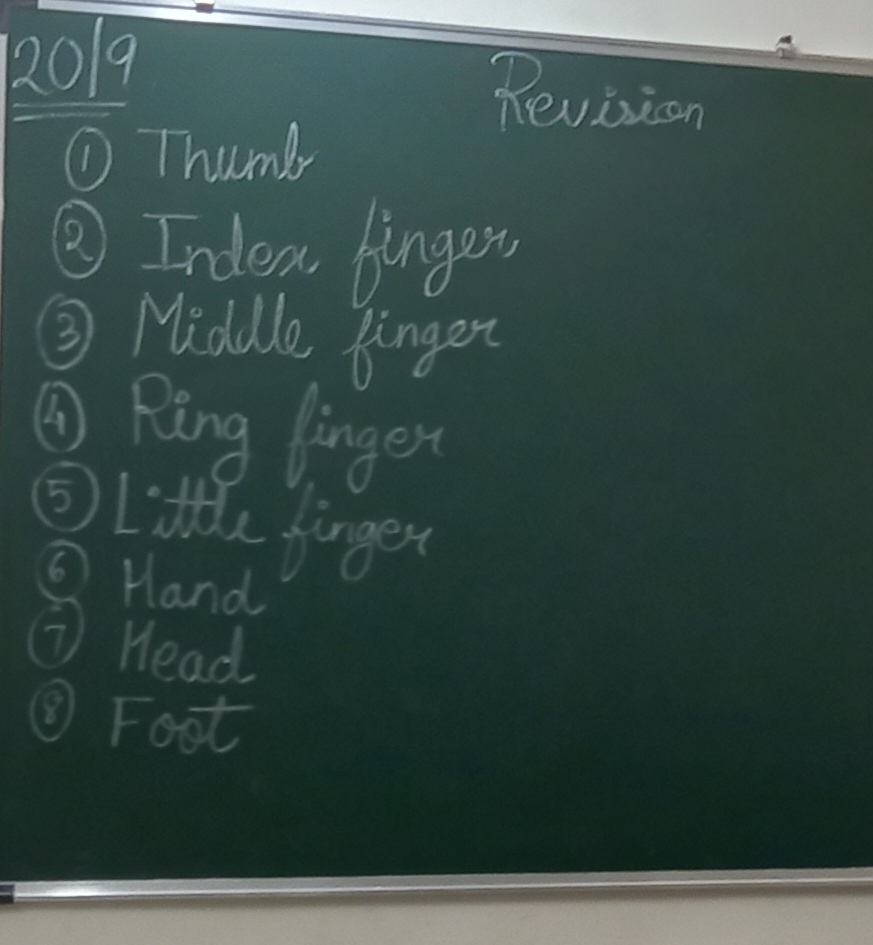 20/9
Revision
① Thumb
② Index finger
③ Middle finger
④ Ring finger
⑤ Little finger
⑥ Hand
⑦ Head
⑧ Foot